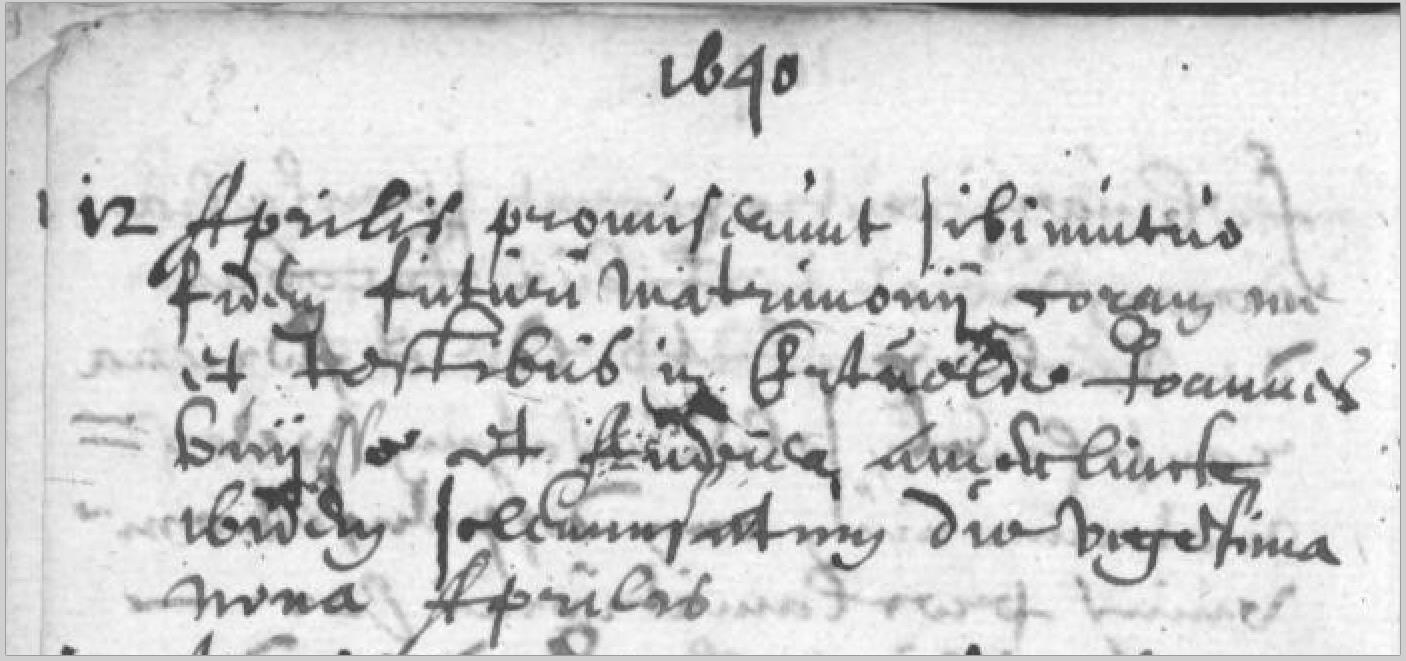 1640
12 Aprilis promiserunt sibi mutuo
fidem futuri Matrimonij coram me
et testibus in Joannes
et
ibidem solemnisatum die vigesima
nona Aprilis